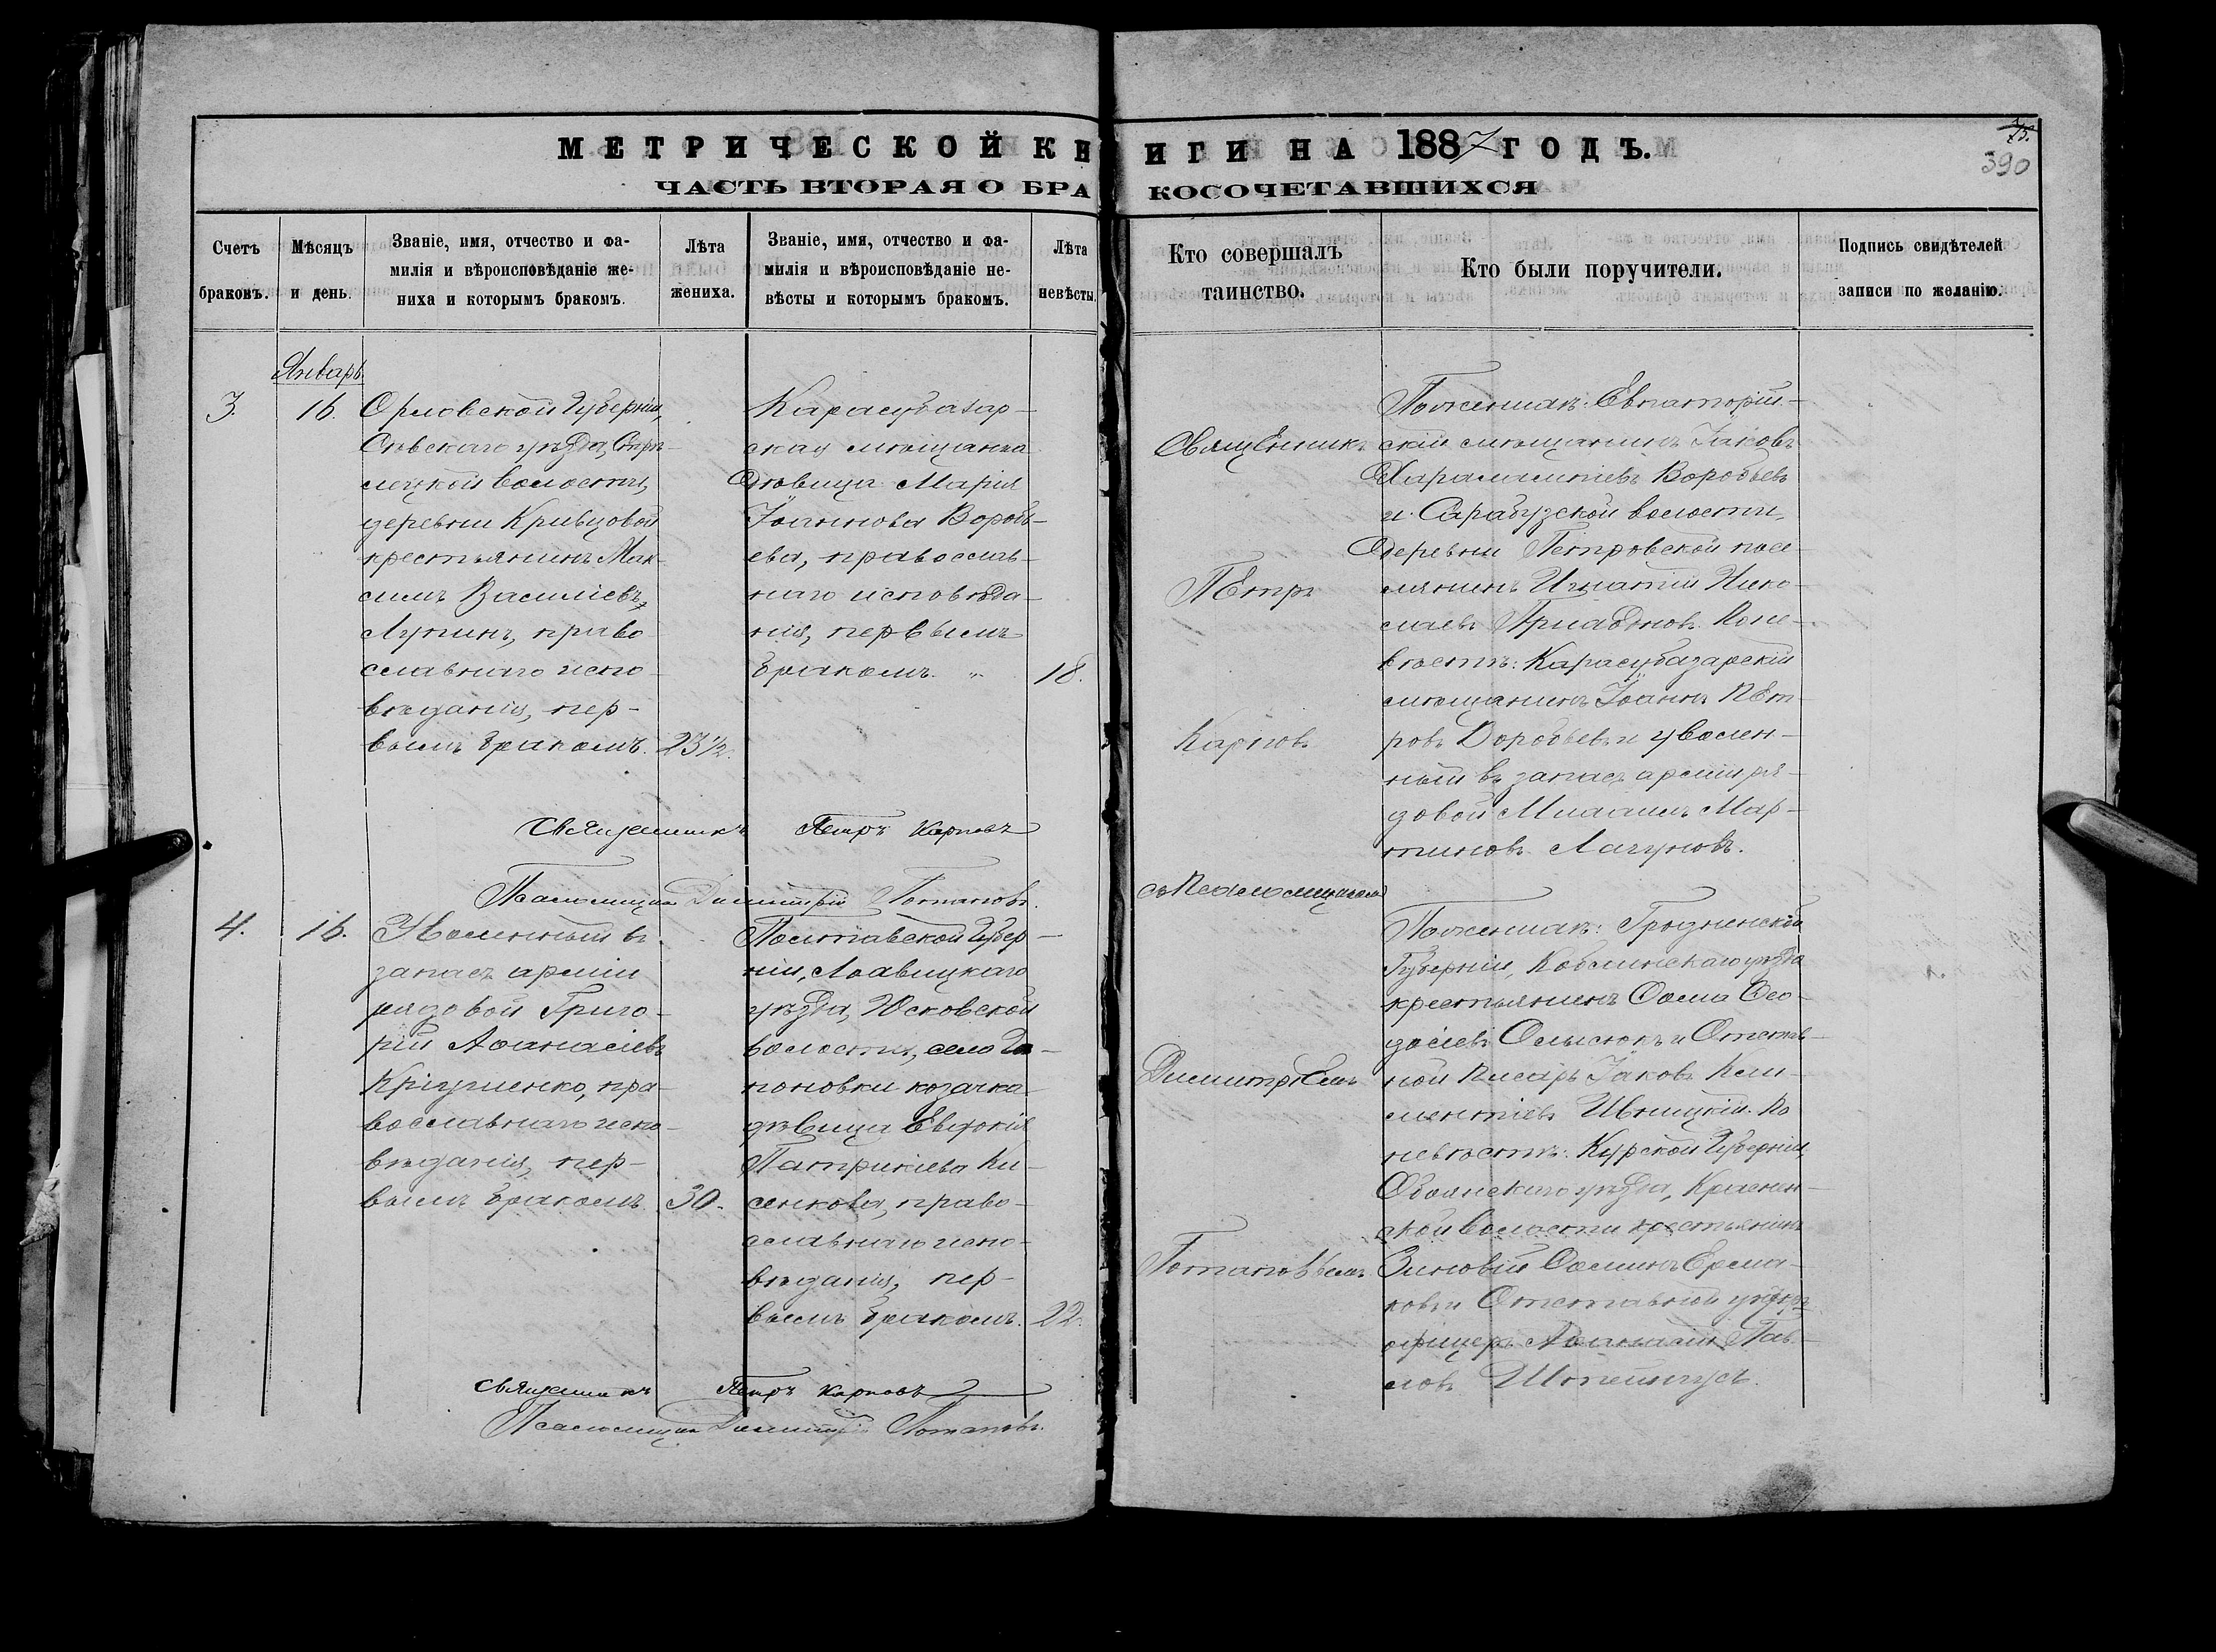 МЕТРИЧЕСКОЙ КНИГИ НА 1887 ГОДЪ.
ЧАСТЬ ВТОРАЯ О БРАКОСОЧЕТАВШИХСЯ
75.
390
Счетъ
браковъ.
Мѣсяцъ
и день.
Званіе, имя, отчество и фа-
милія и вѣроисповѣданіе же-
ниха и которымъ бракомъ.
Лѣта
жениха.
Званіе, имя, отчество и фа-
милія и вѣроисповѣданіе не-
вѣсты и которымъ бракомъ.
Лѣта
невѣсты.
Кто совершалъ
таинство.
Кто были поручители.
Подпись свидѣтелей
записи по желанію.
3.
Январь
16.
Орловской Губерніи,
Сѣвскаго уѣзда, Стрѣ-
лецкой волости,
деревни Кривцовой
крестьянинъ Мак-
симъ Василіевъ
Лупинъ, право
славнаго испо-
вѣданія, пер-
вымъ бракомъ.
23 1/2.
Карасубазар-
ская мѣщанка
дѣвица Марія
Іоаннова Воробь-
ева, православ-
наго исповѣда-
нія, первымъ
бракомъ. "
18.
Священникъ
Петръ
Карповъ
съ Псаломщикомъ
Димитріемъ
Потаповымъ
По женихѣ: Евпаторій-
скій мѣщанинъ Іаковъ
Харалампіевъ Воробьевъ
и Сарабузской волости,
деревни Петровской посе-
лянинъ Игнатій Нико-
лаевъ Пріадновъ. По не-
вѣстѣ: Карасубазарскій
мѣщанинъ Іоаннъ Пет-
ровъ Воробьевъ и уволен-
ный въ запасъ арміи ря-
довой Михаилъ Мар-
тиновъ Лагуновъ.
Священникъ Петръ Карповъ
Псаломщикъ Димитрій Потаповъ.
4.
16.
Уволенный въ
запасъ арміи
рядовой Григо-
рій Аѳанасіевъ
пра-
вославнаго испо-
вѣданія, пер-
вымъ бракомъ.
30.
Полтавской Губер-
ніи, Лохвицкаго
уѣзда, Юсковской
волости, село Га-
поновки козачка
дѣвица Евдокія
Патрикіева Ки-
сенкова, право-
славнаго испо-
вѣданія, пер-
вымъ бракомъ.
22.
По женихѣ: Гродненской
Губерніи, Кобринскаго уѣзда
крестьянинъ Ѳома Ѳео-
досіевъ Олысюкъ и Отстав-
ной Писарь Іаковъ Кли-
ментіевъ Ивницкій. По
невѣстѣ: Курской Губерніи,
Обоянскаго уѣзда, Краснян-
ской волости крестьянинъ
Зиновій Ѳоминъ Ерма-
ковъ и Отставной унтеръ
офицеръ Аѳанасій Пав-
ловъ
Священникъ Петръ Карповъ
Псаломщикъ Димитрій Потаповъ.